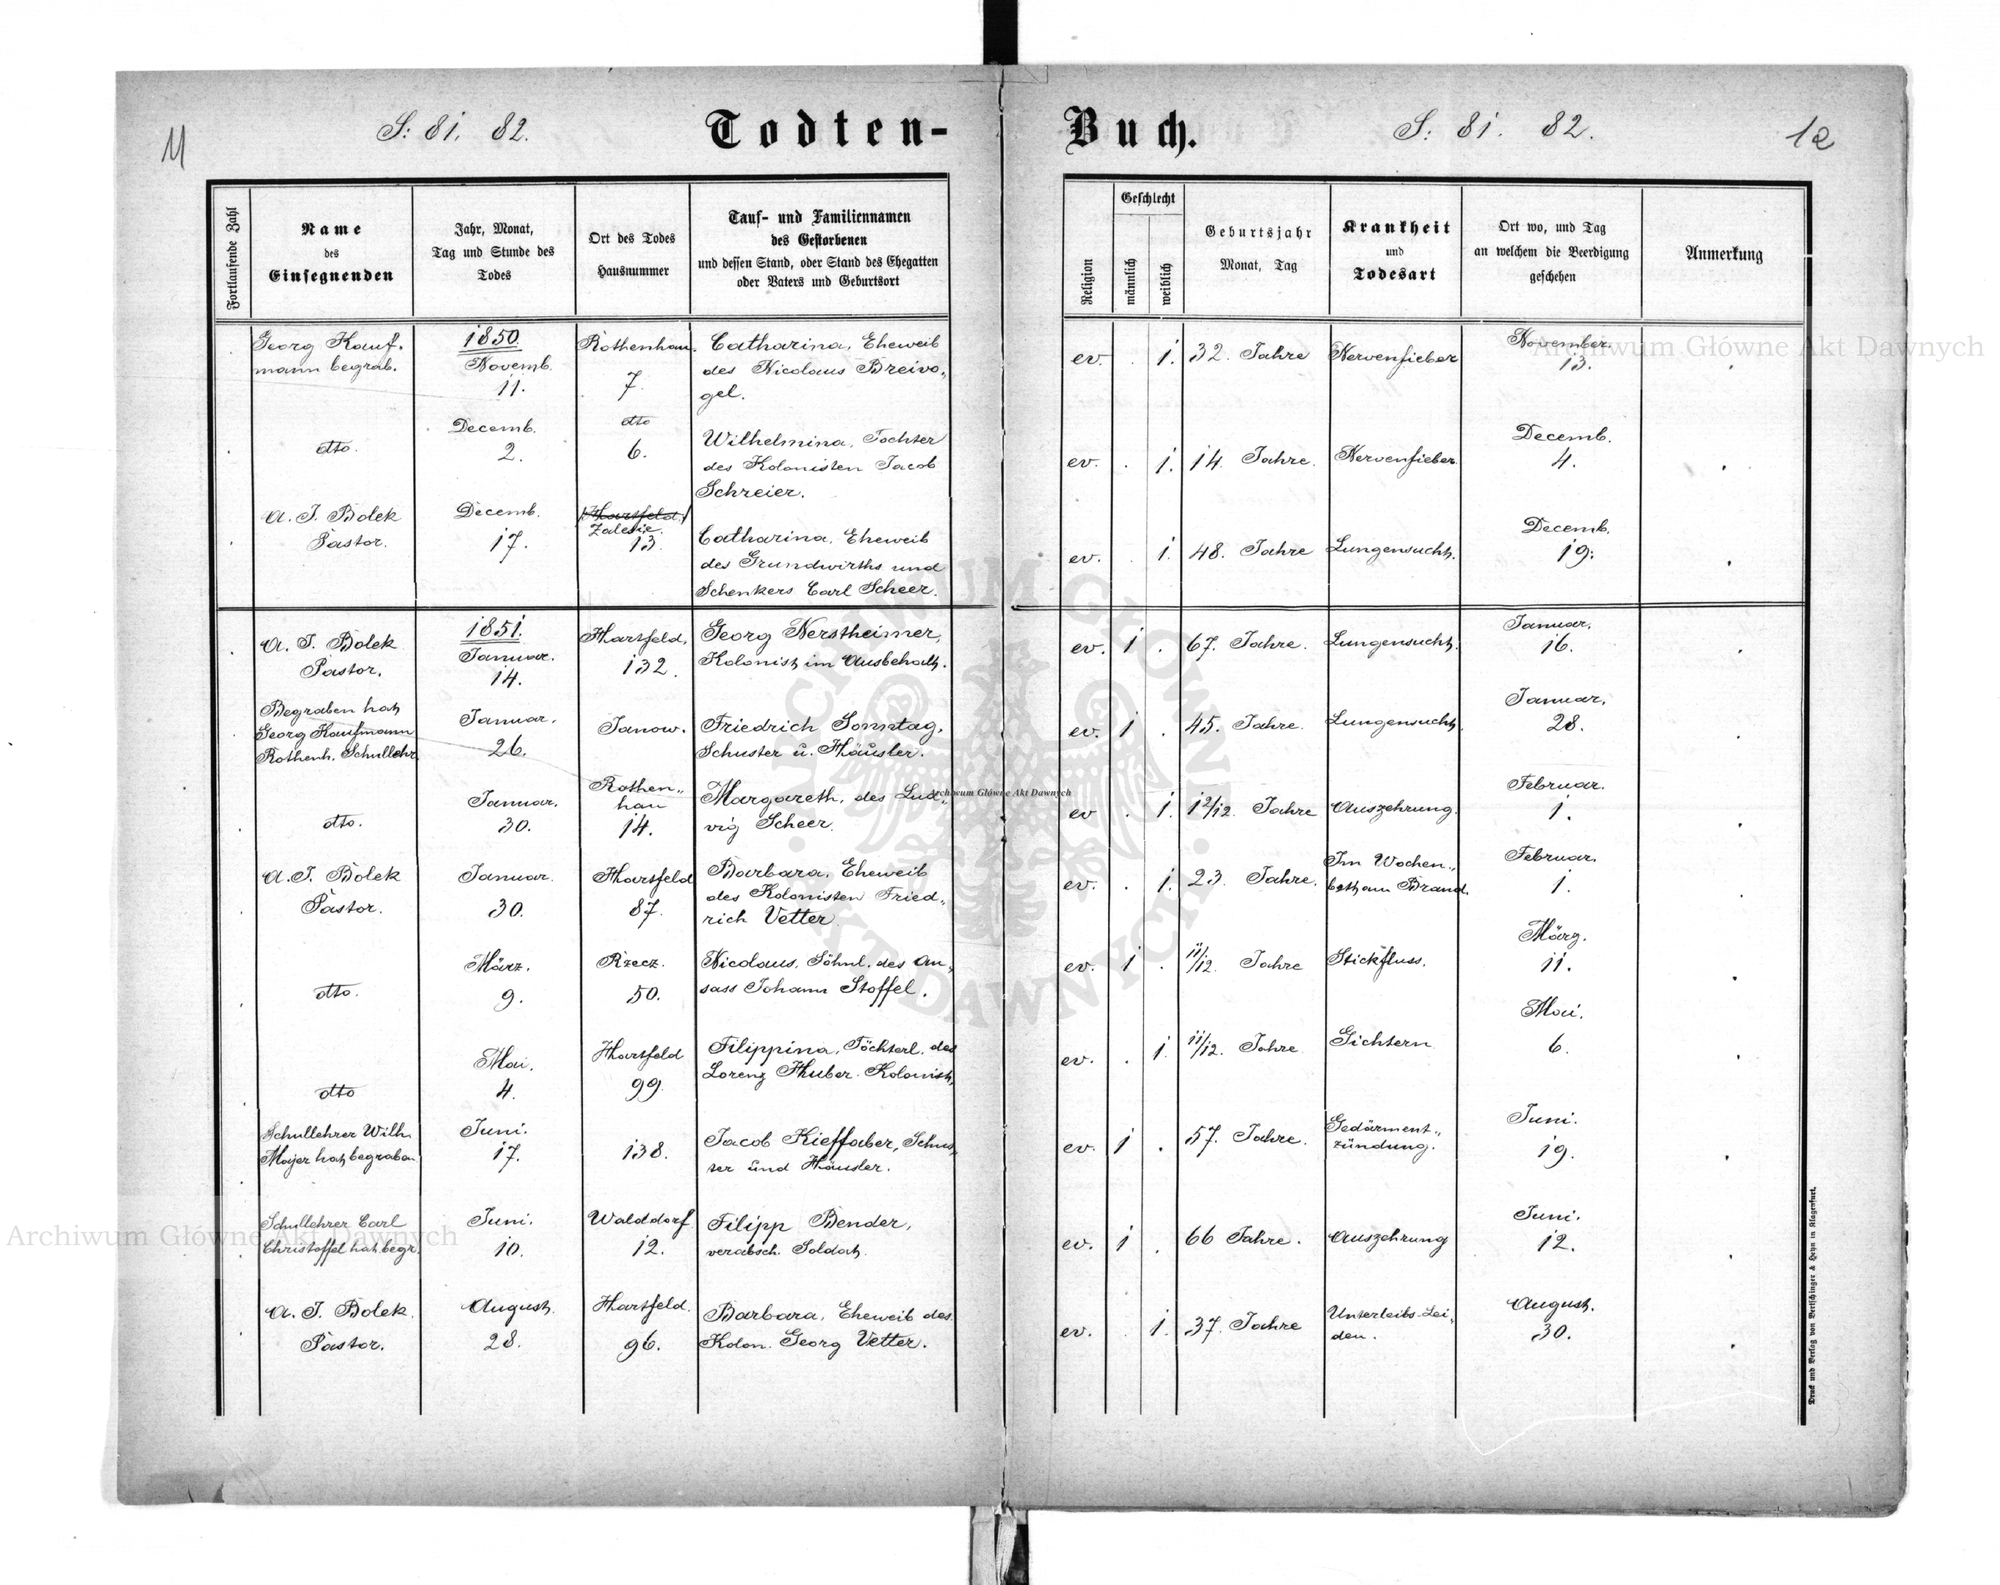 11
S: 81. 82.
Todten-
Buch.
S: 81. 82.
12
Fortlaufende Zahl
Name
des
Einsegnenden
Jahr, Monat,
Tag und Stunde des
Todes
Ort des Todes
Hausnummer
Tauf- und Familiennamen
des Gestorbenen
und dessen Stand, oder Stand des Ehegatten
oder Vaters und Geburtsort
Religion
Geschlecht
männlich
weiblich
Geburtsjahr
Monat, Tag
Krankheit
und
Todesart
Ort wo, und Tag
an welchem die Beerdigung
geschehen
Anmerkung
Georg Kauf-
mann begrab.
1850.
Novemb.
11.
Rothenhan.
7.
Catharina, Eheweib
des Nicolaus Breivo„
gel.
ev. . 1. 32. Jahre
Nervenfieber
November.
13.
dto.
Decemb.
2.
dto
6.
Wilhelmina, Tochter
des Kolonisten Jacob
Schreier.
ev. . 1. 14. Jahre.
Nervenfieber
Decemb.
4.
A. J. Bolek
Pastor.
Decemb.
17.
/Hartfeld./
Zalesie.
13.
Catharina, Eheweib
des Grundwirths und
Schenkers Carl Scheer.
ev. . 1. 48. Jahre
Lungensucht.
Decemb.
19.
A. J. Bolek
Pastor.
1851.
Januar.
14.
Hartfeld.
132.
Georg Nerstheimer,
Kolonist im Ausbehalt.
ev. 1 . 67. Jahre.
Lungensucht.
Januar.
16.
Begraben hat
Georg Kaufmann
Rothenh. Schullehr.
Januar.
26.
Janow.
Friedrich Sonntag,
Schuster u. Häusler.
ev. 1 . 45. Jahre.
Lungensucht.
Januar.
28.
dto.
Januar.
30.
Rothen„
han
14.
Margareth, des Lud„
vig Scheer.
ev . 1. 1 2/12. Jahre
Auszehrung.
Februar.
1.
A. J. Bolek
Pastor.
Januar.
30.
Hartfeld
87.
Barbara, Eheweib
des Kolonisten Fried„
rich Vetter.
ev. . 1. 23. Jahre.
Im Wochen„
bett am Brand.
Februar.
1.
dto.
März.
9.
Rzecz.
50.
Nicolaus, Söhnl. des An„
sass Johann Stoffel.
ev. 1 . 11/12. Jahre
Stickfluss.
März.
11.
dto
Mai.
4.
Hartfeld
99.
Filippina, Töchterl. des
Lorenz Huber. Kolonist.
ev. . 1. 11/12. Jahre
Gichtern
Mai.
6.
Schullehrer Wilh.
Majer hat begraben
Juni.
17.
138.
Jacob Kieffaber, Schus„
ter und Häusler.
ev. 1 . 57. Jahre.
Gedärment„
zündung.
Juni.
19.
Schullehrer Carl
Christoffel hat begr.
Juni.
10.
Walddorf
12.
Filipp Bender,
verabsch. Soldat.
ev. 1 . 66 Jahre.
Auszehrung
Juni.
12.
A. J. Bolek.
Pastor.
August.
28.
Hartfeld.
96.
Barbara, Eheweib des
Kolon. Georg Vetter.
ev. . 1. 37. Jahre
Unterleibs-Lei„
den.
August.
30.
Druck und Verlag von Bertschinger & Heyn in Klagenfurt.
Archiwum Główne Akt Dawnych
Archiwum Główne Akt Dawnych
Archiwum Główne Akt Dawnych
ARCHIWUM GŁÓWNE AKT DAWNYCH